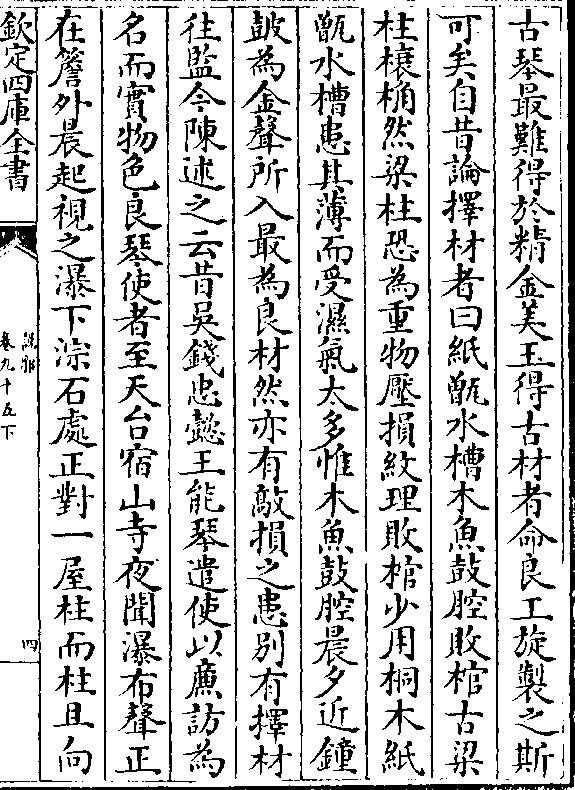 古琴最難得於精金美玉得古材者命良工旋製之斯
可矣自昔論擇材者曰紙甑水槽木魚鼓腔敗棺古梁
柱榱桷然梁柱恐為重物壓損紋理敗棺少用桐木紙
甑水槽患其薄而受濕氣太多惟木魚鼓腔晨夕近鐘
鼓為金聲所入最為良材然亦有敲損之患别有擇材
往監今陳述之云昔吳錢忠懿王能琴遣使以廉訪為
名而實物色良琴使者至天台宿山寺夜聞瀑布聲正
在簷外晨起視之瀑下淙石處正對一屋柱而柱且向
欽定四庫全書
說郛
卷九十五下
四